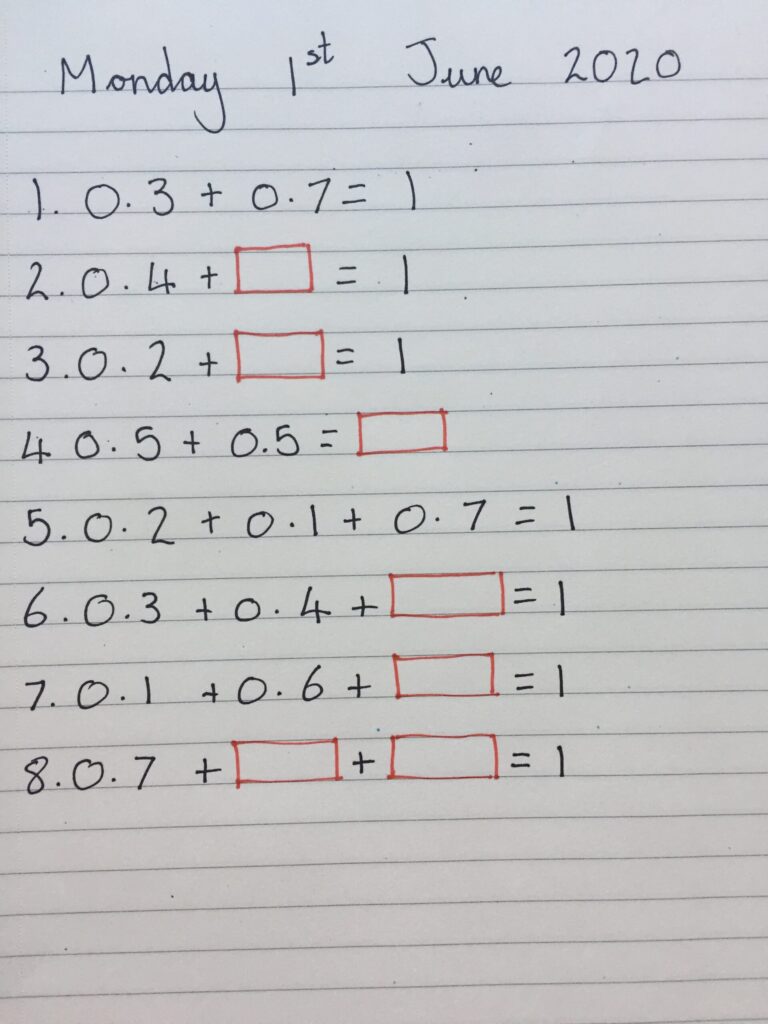 Monday 1st June 2020
1. 0.3 + 0.7 = 1
2. 0.4 + □ = 1
3. 0.2 + □ = 1
4 0.5 + 0.5 = □
5. 0.2 + 0.1 + 0.7 = 1
6. 0.3 + 0.4 + □ = 1
7. 0.1 + 0.6 + □ = 1
8. 0.7 + □ + □ = 1